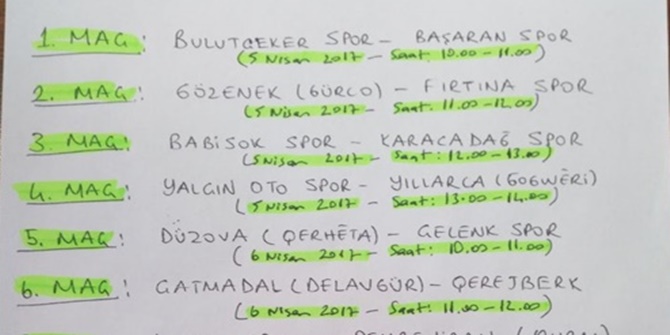 1. MAG: BULUTGEKER SPOR - BAŞARAN SPOR
(5 Nisan 2017 - Saat: 10.00 - 11.00)
2. MAG: GÖZENEK (GÜRCO) - FIRTINA SPOR
(5 Nisan 2017 - Saat: 11.00 - 12.00)
3. MAG: BABİSOK SPOR - KARACADAĞ SPOR
(5 Nisan 2017 - Saat: 12.00 - 13.00)
4. MAG: YALGIN OTO SPOR - YILLARCA (GOGWÊRİ)
(5 Nisan 2017 - Saat: 13.00 - 14.00)
5. MAG: DÜZOVA (QERHÊTA) - GELENK SPOR
(6 Nisan 2017 - Saat: 10.00 - 11.00)
6. MAG: GATMADAL (DELAVGÜR) - QEREJBERK
(6 Nisan 2017 - Saat: 11.00 - 12.00)